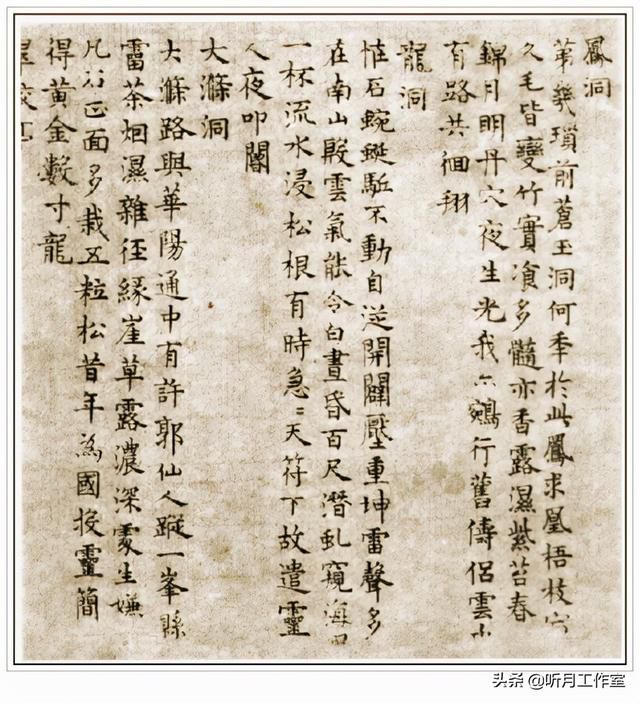 鳳洞
第幾瑣前蒼玉洞何年於此鳳求凰梧枝
久毛皆變竹實飡多髓亦香露濕紫苔春
錦月明丹穴夜生光我亦鵷行舊儔侶雲山
有路共徊翔
龍洞
恠石蜿蜒駈不動自逆開闢壓重坤雷聲多
在南山殷雲氣能令白晝昏百尺潛虬窺海
一杯流水浸松根有時急〻天符下故遣靈
人夜叩闗
大滌洞
大滌路與華陽通中有許郭仙人蹤一峯縣
雷茶烟濕雜径緣崖草露濃深處生嫌
凡石正面多栽五粒松昔年為國投靈簡
得黃金數寸龍
头条 @听月工作室